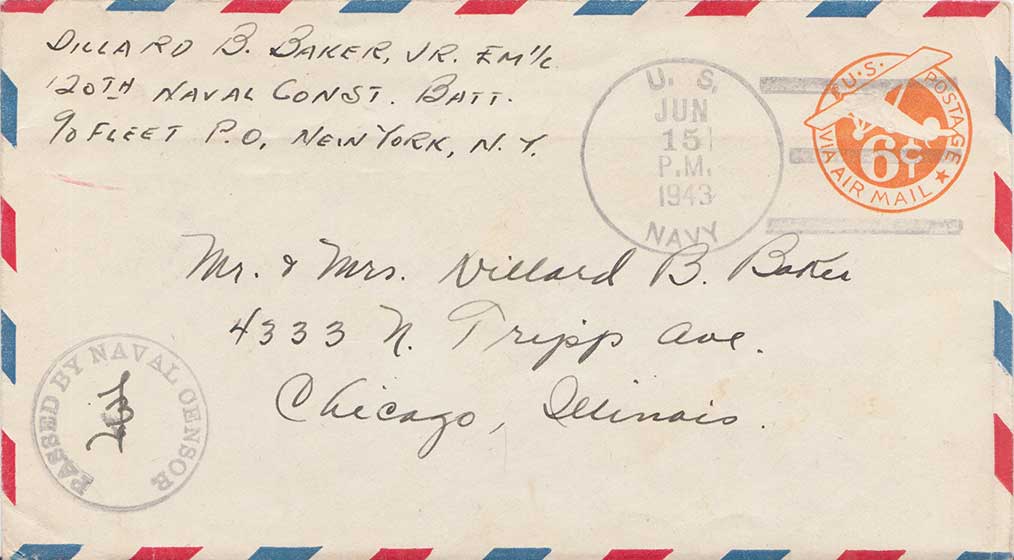 DILLARD B. BAKER, JR. EM 1/c
120TH NAVAL CONST. BATT.
℅ FLEET P.O. NEW YORK, N.Y.
U. S.
JUN
15
P.M.
1943
NAVY
U.S. POSTAGE
6¢
VIA AIR MAIL
Mr. & Mrs. Dillard B. Baker
4333 N. Tripp Ave.
Chicago, Illinois.
PASSED BY NAVAL CENSOR